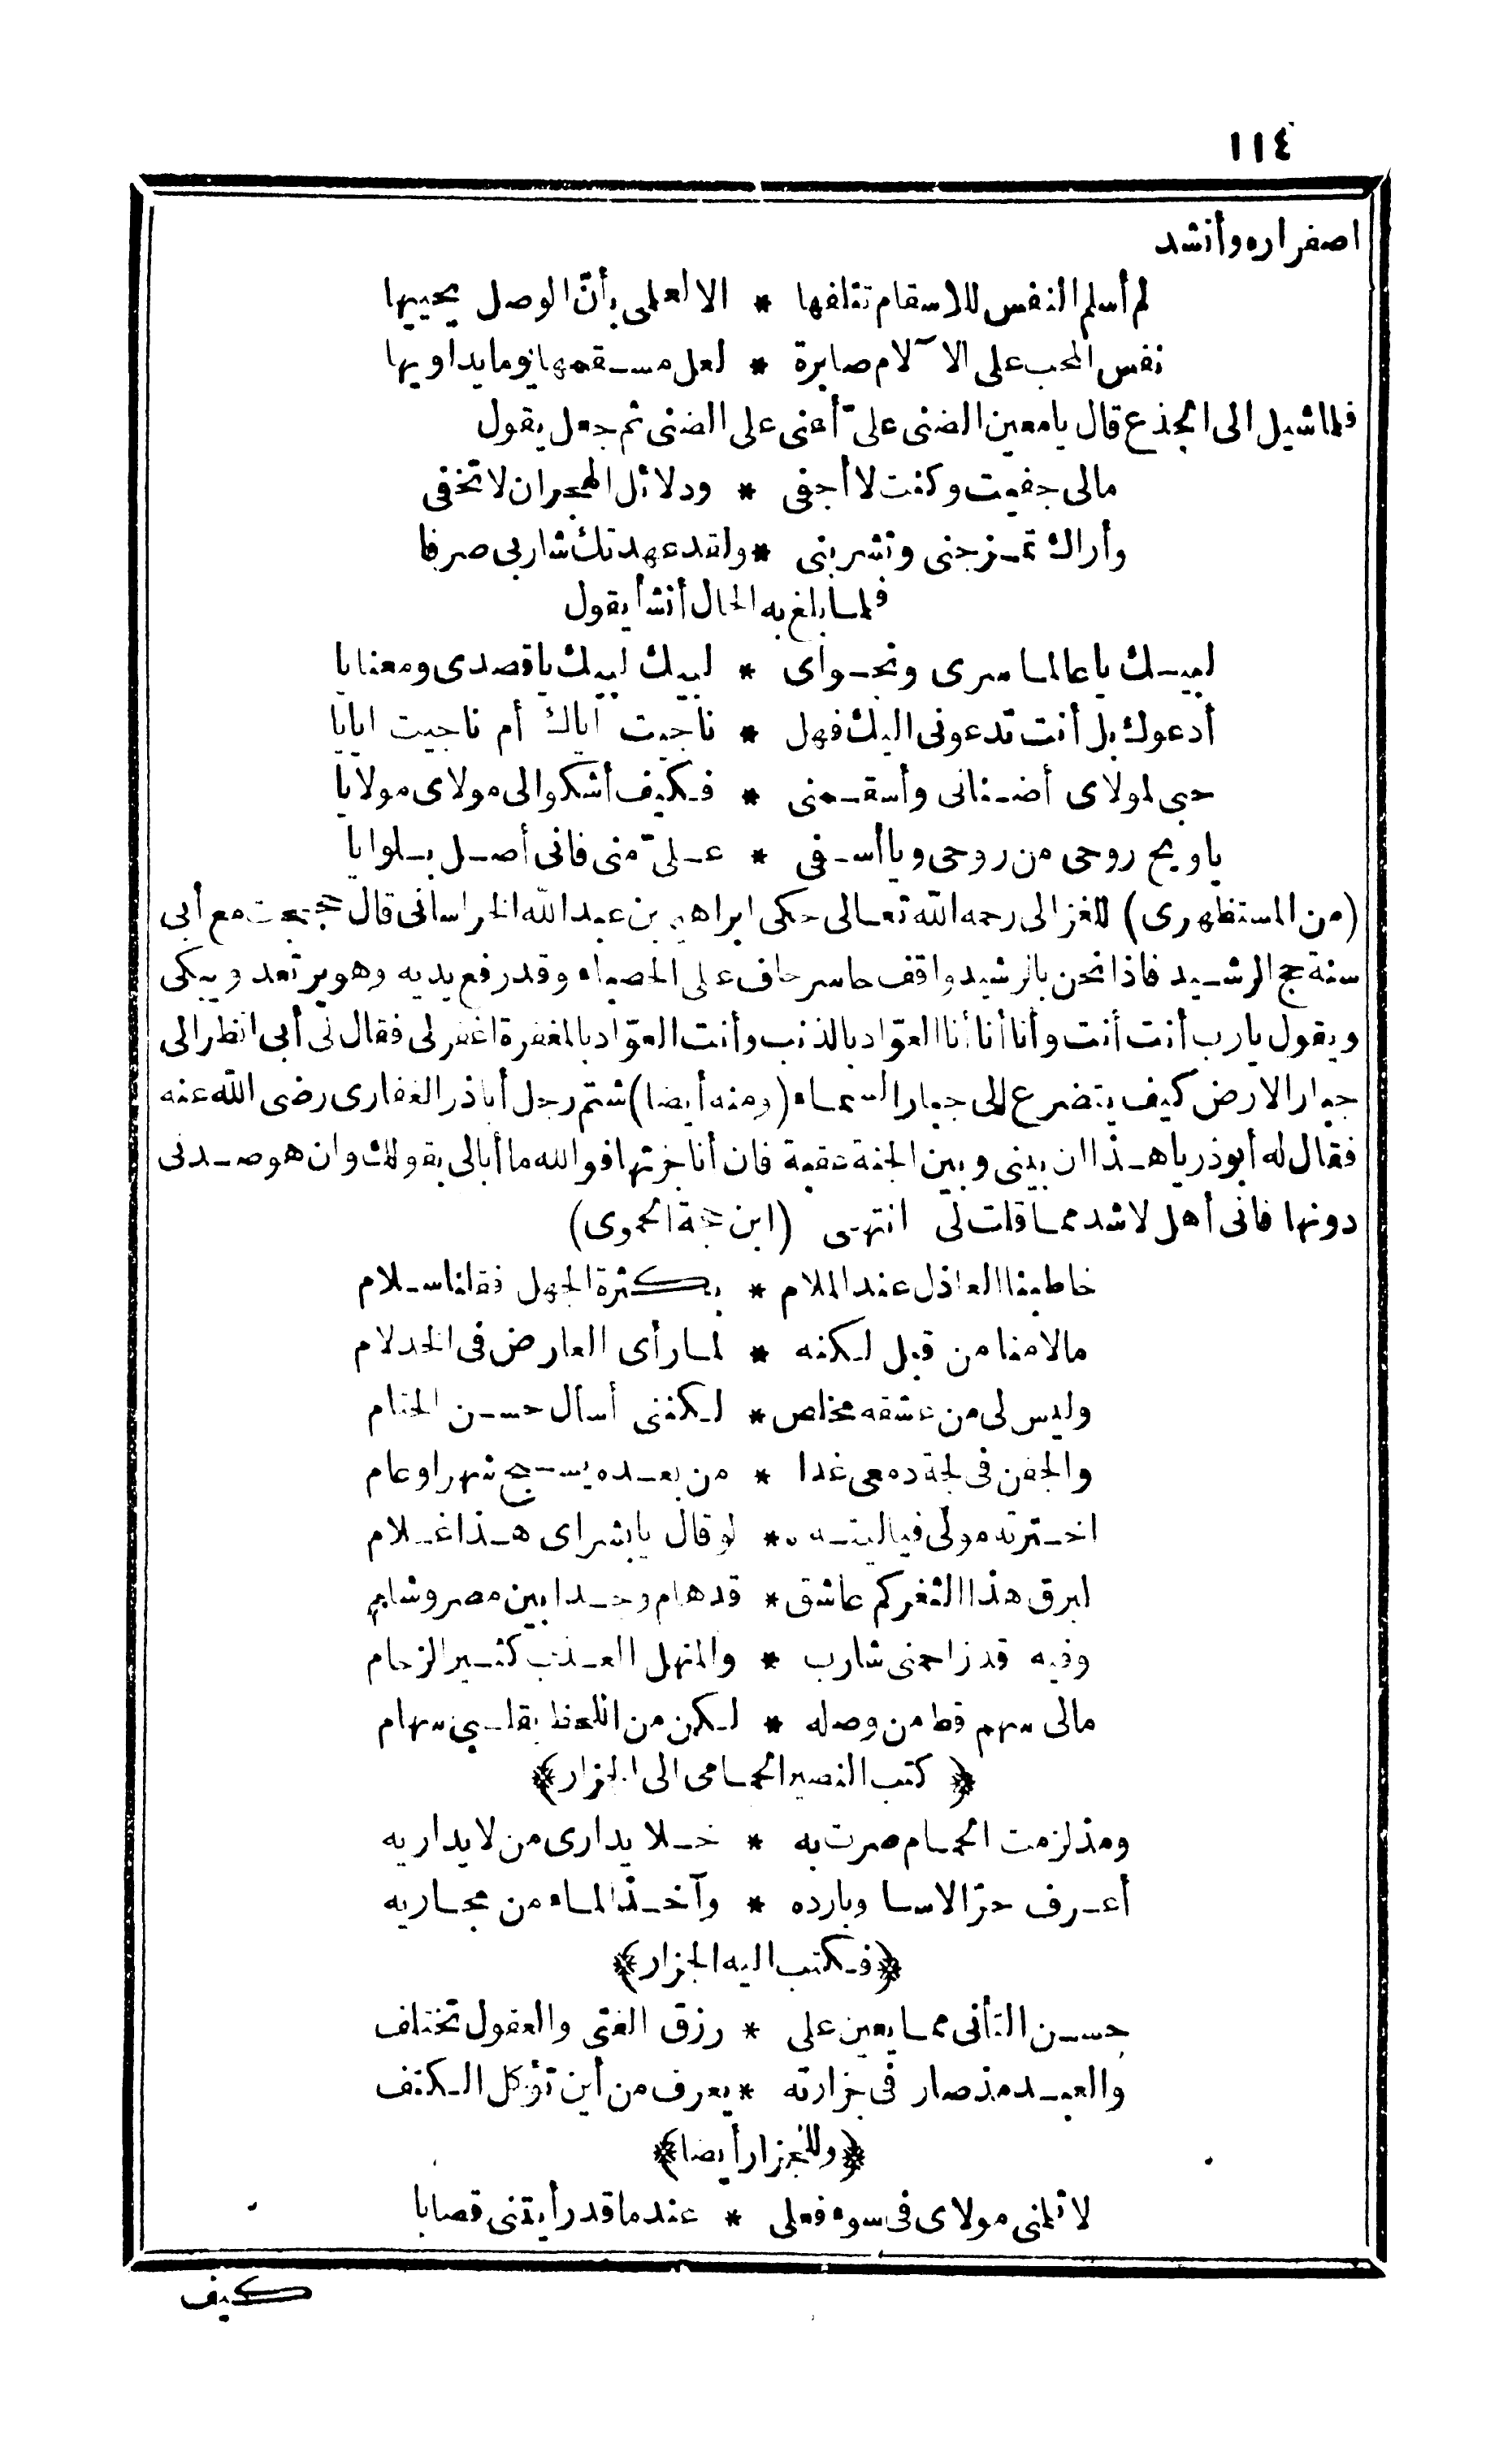 ١١٤
اصفراره وأنشد
لم أسلم النفس للاسقام تتلفها * الا لعلمى بأنّ الوصل يحييها
نفس المحب على الآلام صابرة * لعل مسقمها يوما يداويها
فلما شيل الى الجذع قال يا معين الضنى علىّ أعنى على الضنى ثم جعل يقول
مالى جفيت وكنت لا أجفى * ودلائل الهجران لا تخفى
وأراك تمزجنى وتشربنى * ولقد عهدتك شاربى صرفا
فلما بلغ به الحال أنشأ يقول
لبيك يا عالما سرى ونجواى * لبيك لبيك يا قصدى ومعنايا
أدعوك بل أنت تدعونى اليك فهل * ناجيت اياك أم ناجيت ايايا
حبى لمولاى أضنانى وأسقمنى * فكيف أشكو الى مولاى مولايا
يا ويح روحى من روحى ويا أسفى * علىّ منى فانى أصل بلوايا
(من المستظهرى) للغزالى رحمه الله تعالى حكى ابراهيم بن عبد الله الخراسانى قال حججت مع أبى
سنة حج الرشيد فاذا نحن بالرشيد واقف حاسر حاف على الحصباء وقد رفع يديه وهو يرتعد ويبكى
ويقول يا رب أنت أنت وأنا أنا أنا العوّاد بالذنب وأنت العوّاد بالمغفرة اغفر لى فقال لى أبى انظر الى
جبار الارض كيف يتضرع الى جبار السماء (ومنه أيضا) شتم رجل أبا ذر الغفارى رضى الله عنه
فقال له أبو ذر يا هذا ان بينى وبين الجنة عقبة فان أنا جزتها فوالله ما أبالى بقولك وان هو صدنى
دونها فانى أهل لاشد مما قلت لى انتهى (ابن حجة الحموى)
خاطبنا العاذل عند الملام * بكثرة الجهل فقلنا سلام
مالامنا من قبل لكنه * لما رأى العارض فى الخد لام
وليس لى من عشقه مخلص * لكننى أسأل حسن الختام
والجفن فى لجة دمعى غدا * من بعده يسبح شهرا وعام
اخترته مولى فيا ليته * لو قال يا بشراى هذا غلام
لبرق هذا الثغر كم عاشق * قد هام وجدا بين مصر وشام
وفيه قد زاحمنى شارب * والمنهل العذب كثير الزحام
مالى سهم قط من وصله * لكن من اللحظ بقلبى سهام
﴿كتب النصير الحمامى الى الجزار﴾
ومذ لزمت الحمام صرت به * خلا يدارى من لا يداريه
أعرف حرّ الاسا وبارده * وآخذ الماء من مجاريه
﴿فكتب اليه الجزار﴾
حسن التأنى مما يعين على * رزق الفتى والعقول تختلف
والعبد مذ صار فى جزارته * يعرف من أين تؤكل الكتف
﴿وللجزار أيضا﴾
لا تلمنى مولاى فى سوء فعلى * عند ما قد رأيتنى قصابا
كيف